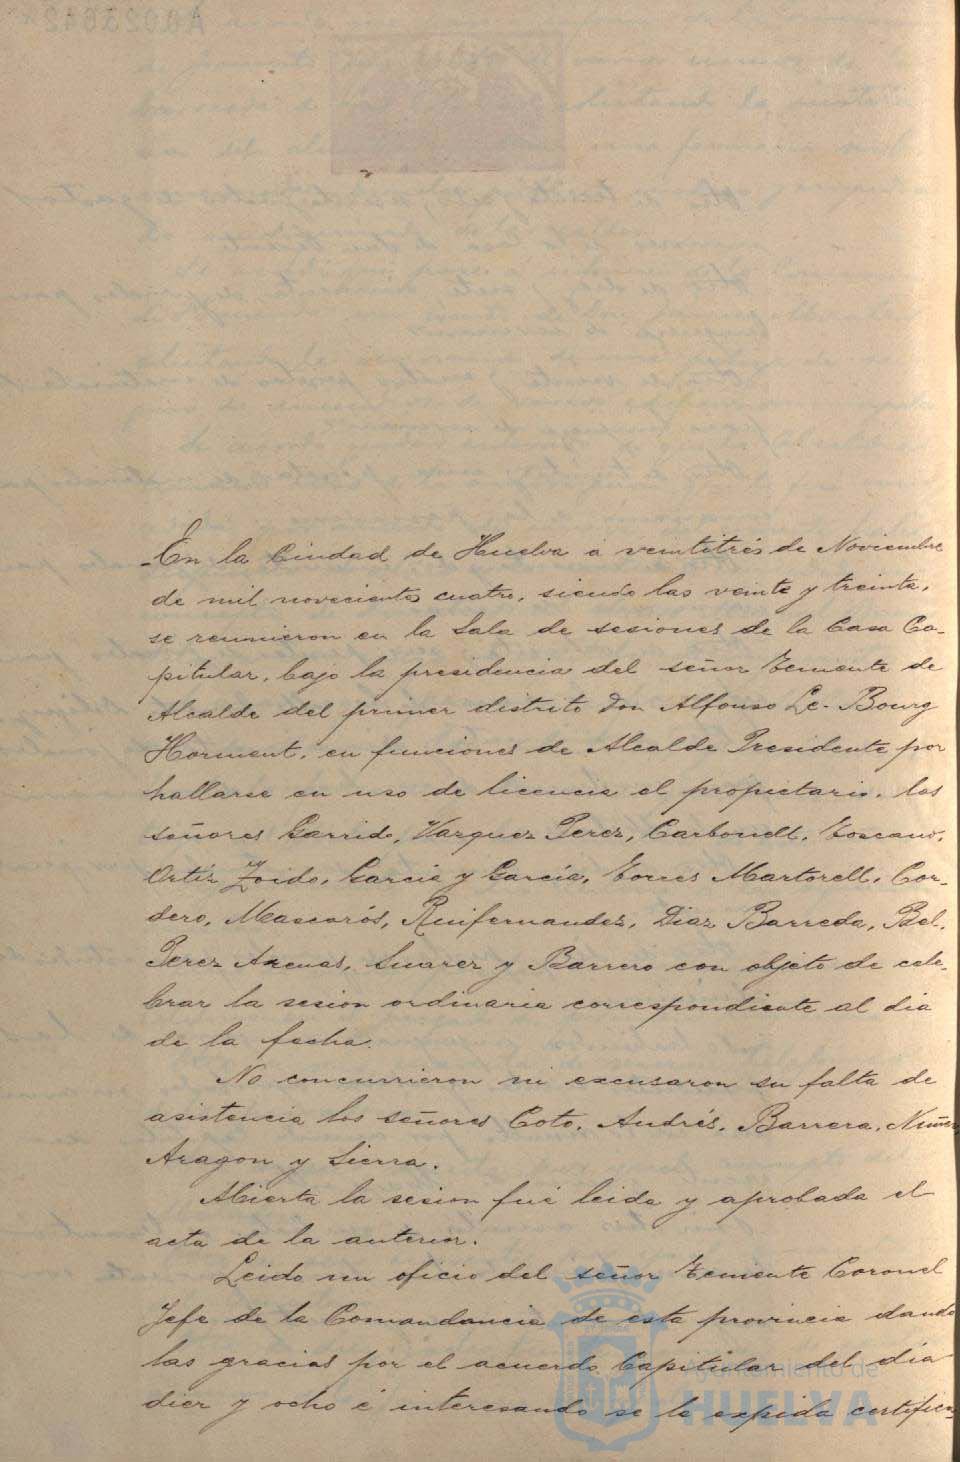 En la Ciudad de Huelva á veintitrés de Noviembre
de mil novecientos cuatro, siendo las veinte y treinta,
se reunieron en la Sala de sesiones de la Casa Ca-
pitular, bajo la presidencia del señor Teniente de
Alcalde del primer distrito Don Alfonso Le-Bourg
Horment, en funciones de Alcalde Presidente por
hallarse en uso de licencia el propietario, los
señores Garrido, Vazquez Perez, Carbonell, Toscano,
Ortiz Zoido, Garcia y García, Torres Martorell, Cor-
dero, Mascarós, Ruifernandez, Diaz Barreda, Bel,
Perez Arenas, Suarez y Barrero con objeto de cele-
brar la sesion ordinaria correspondiente al dia
de la fecha.
No concurrieron ni excusaron su falta de
asistencia los señores Coto, Andrés, Barrera, Nuñez
Aragon y Sierra.
Abierta la sesion fué leida y aprobada el
acta de la anterior.
Leido un oficio del señor Teniente Coronel
Jefe de la Comandancia de esta provincia dando
las gracias por el acuerdo Capitular del día
diez y ocho é interesando se le expida certifica-
Ayuntamiento de
HUELVA